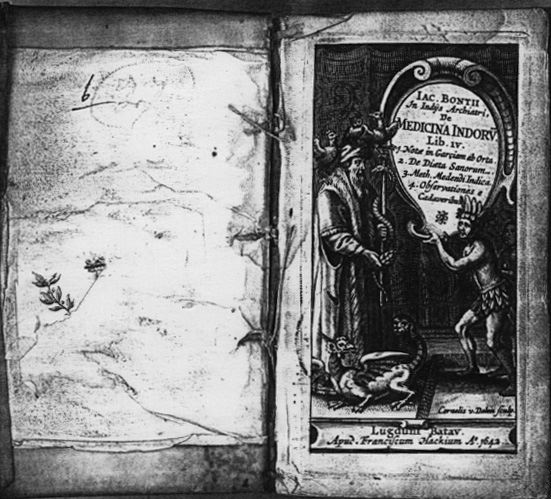 6
IAC. BONTII
In Indijs Archiatri,
De
MEDICINA INDORV̄
Lib. IV.
1. Notæ in Garçiam ab Orta.
2. De Diæta Sanorum.
3. Meth. Medendi Indica.
4. Observationes e
Cadaveribus
Cornelis v. Dalen sculp.
Lugduni Batav.
Apud. Franciscum Hackium Aº. 1642